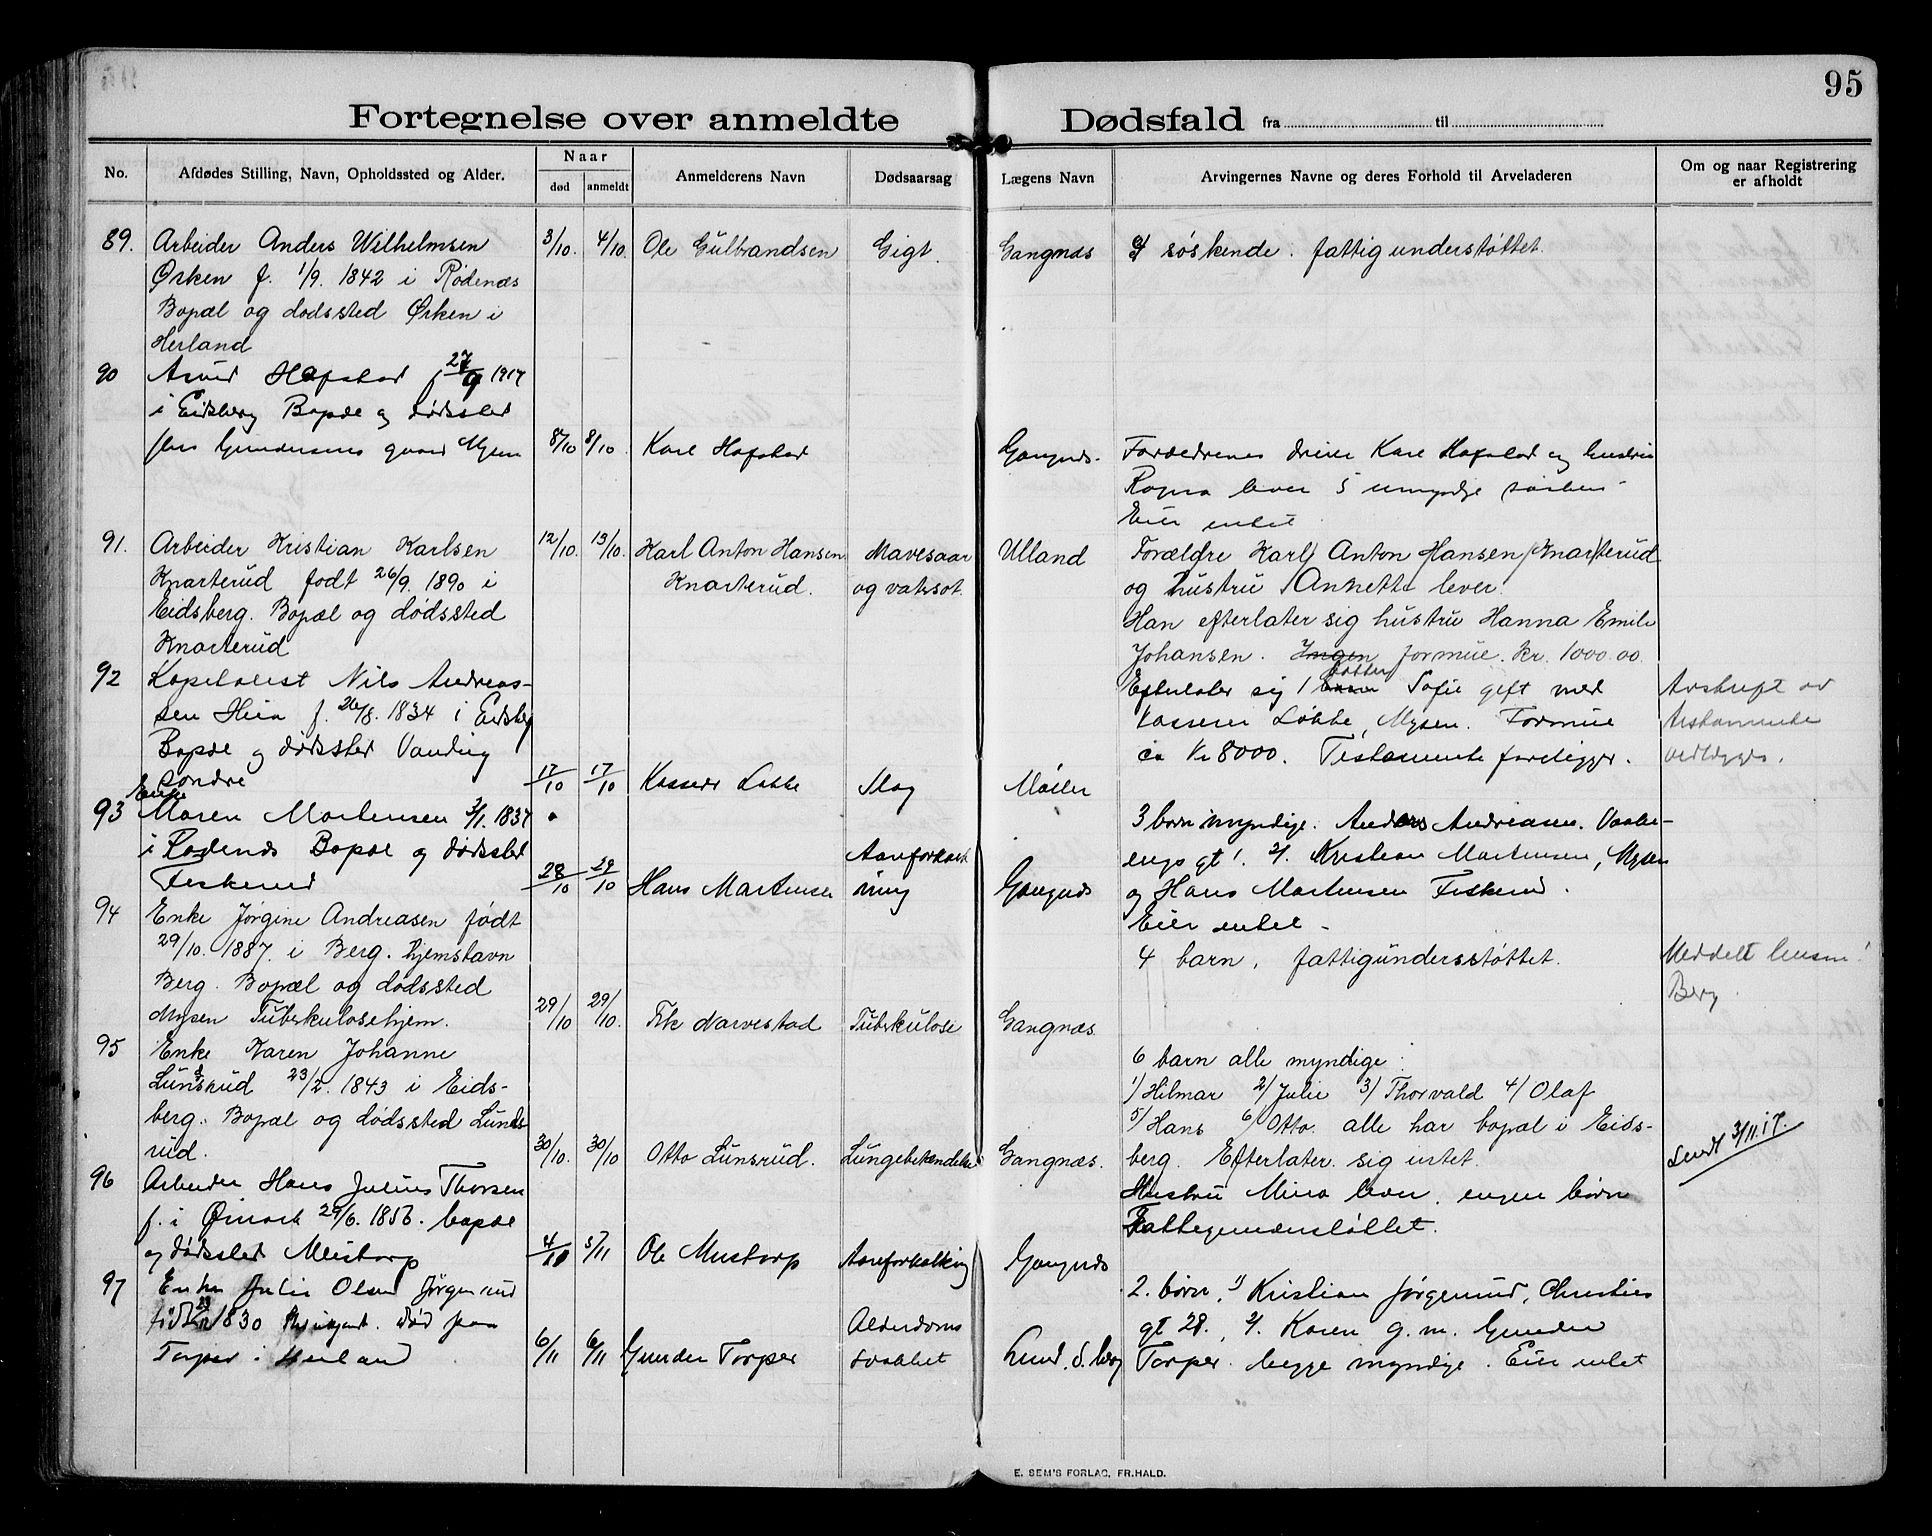 95
Fortegnelse over anmeldte Dødsfald fra till
No.
Afdødes Stilling, Navn, Opholdssted og Alder.
Naar
død
anmeldt
Anmelderens Navn
Dødsaarsag
Lægens Navn
Arvingernes Navne og deres Forhold til Arveladeren
Om og naar Registrering
er afholdt
89. Arbeider Anders Wilhelmsen 3/10. 4/10. Ole Gulbrandsen Gigt. Gangnæs søskende. fattigunderstøttet.
Ørken f. 1/9. 1842 i Rødenæs
Bopæl og dødssted Ørken i
Herland
90 Hafslad f 27/9 1917
i Eidsberg Bopæl og dødssted
Gundersens gaard Mysen 8/10 8/10. Karl Hafslad Gangnæs. Forældrenes Karl Hafslad og hustru
Ragna lever 5 umyndige
Eier intet
91. Arbeider Kristian Karlsen 12/10. 13/10. Karl Anton Hansen Mavesaar Ulland Forældre Karl Anton Hansen Knarterud
Knarterud født 26/9. 1890 i Knarterud. og vatersot. og hustru Annette lever.
Eidsberg. Bopæl og dødssted Han efterlater sig hustru Hanna Emile
Knarterud Johansen. Ingen formue. kr. 1000.00.
92 Nils Andreas- Efterlater sig 1 datter Sofie gift med Avskrift av
sen Heia f. 26/8. 1834 i Eidsberg kasserer Løkke, Mysen. Formue testamente
Bopæl og dødssted ca Kr 8000. Testamente foreligger. vedlægges.
søndre 17/10 17/10 Kasserer Løkke Slag Møller
Enke
93 Maren Martensen 3/1. 1837 3 børn myndige. Anders Andreasen.
i Rødenæs Bopæl og dødssted Aareforkalk 2/. Kristian Martensen, Mysen
Fiskerud 28/10 29/10 Hans Martensen ning Gangnæs og Hans Martensen Fiskerud.
Eier intet.
94 Enke Jørgine Andreasen født
29/10. 1887. i Berg. hjemstavn 4 barn. fattigundersstøttet. Meddelt lensm.
Berg. Bopæl og dødssted Berg.
Mysen Tuberkulosehjem. 29/10 29/10. Frk Narvestad Tuberkulose Gangnæs
95 Enke Karen Johanne 6 barn alle myndige:
Lundsrud 23/2. 1843 i Eids- 1/ Hilmar 2/ Julie 3/ Thorvald 4/ Olaf
berg. Bopæl og dødssted Lunds 5/ Hans 6/ Otto. alle har bopæl i Eids-
rud. 30/10. 30/10 Otto Lunsrud. Lungebetændelse Gangnæs. berg. Efterlater sig intet. Sendt 3/11.17.
96 Arbeider Hans Julius Thorsen Hustru Mina lever, ingen børn
f. i Ømark 29/6. 1856. bopæl Fattigunderstøttet.
og dødssted Mustorp 4/11 5/11 Ole Mustorp Aareforkalkning Gangnæs
97 Enke Julie Olsen Jørgenrud 2. børn, 1/ Kristian Jørgenrud, Christies
født 1830 død paa Alderdoms gt 28., 2/. Karen g. m. Gunder
Torper i Herland 6/11 6/11 Gunder Torper svakhet Lund. S. berg Torper. begge myndige. Eier intet
E. SEM'S FORLAG, FR.HALD.